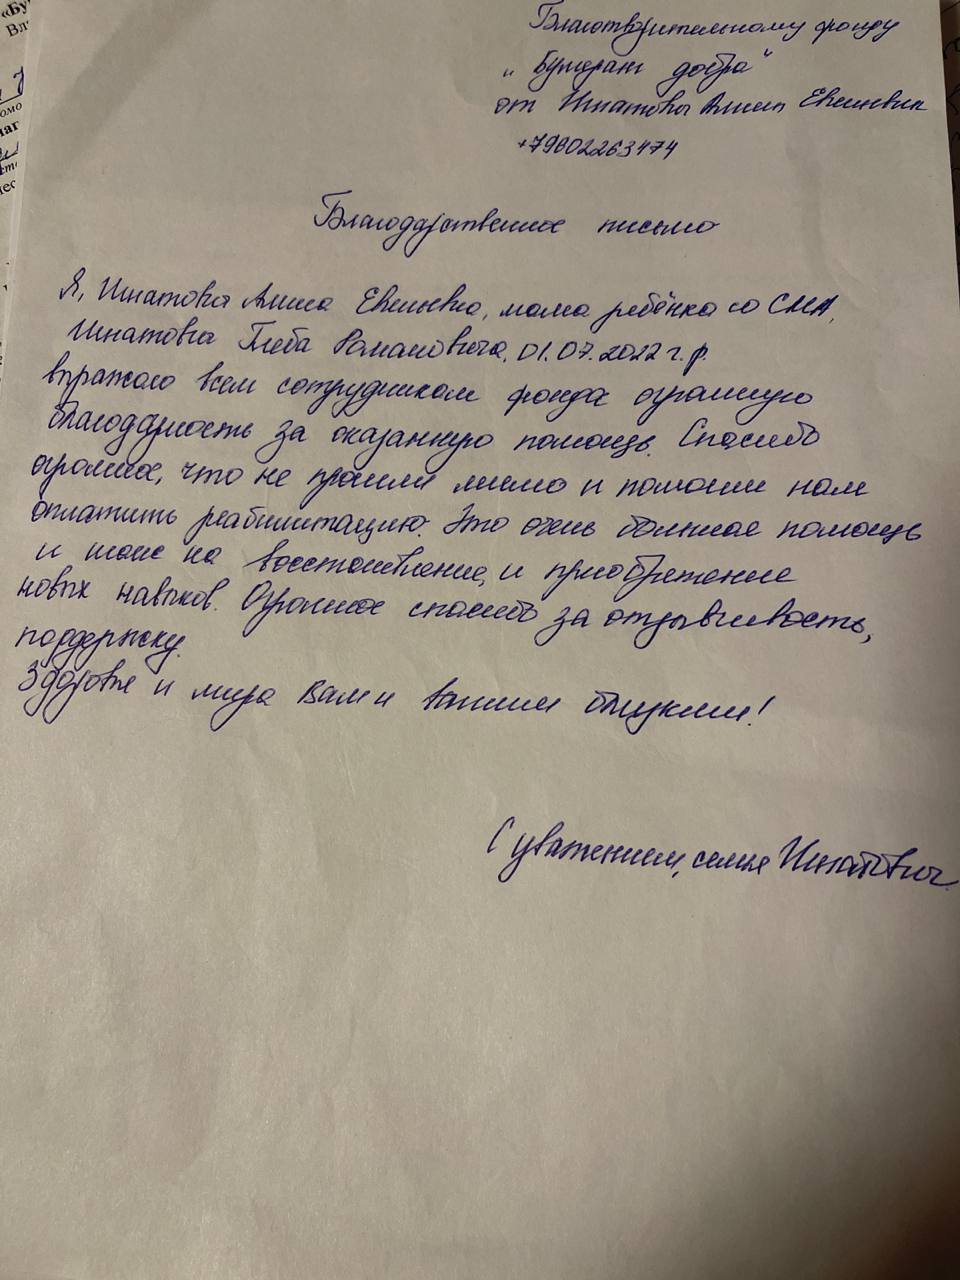 Благотворительному фонду
„Бумеранг добра"
от Игнатовой Алины Евгеньевны
+79602263474
Благодарственное письмо
Я, Игнатова Алина Евгеньевна, мама ребёнка со СМА,
Игнатова Глеба Романовича, 01.07.2022 г.р.
выражаю всем сотрудникам фонда огромную
благодарность за оказанную помощь. Спасибо
огромное, что не прошли мимо и помогли нам
оплатить реабилитацию. Это очень большая помощь
и шанс на восстановление, и приобретение
новых навыков. Огромное спасибо за отзывчивость,
поддержку.
Здоровья и мира Вам и вашим близким!
С уважением, семья Игнатовых.